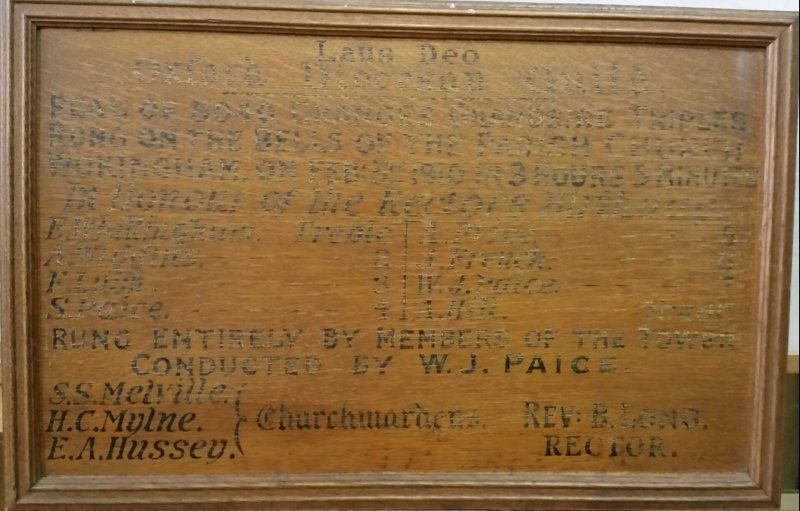 Laus Deo
Oxford Diocesan Guild
PEAL OF 5040 CHANGES GRANDSIRE TRIPLES
RUNG ON THE BELLS OF THE PARISH CHURCH
WOKINGHAM, ON FEB 5TH 1910 IN 3 HOURS 5 MINUTES
In Honour of the Rectors Birthday
Treble 5
A. Wiggins. 2 J. French. 6
F. 3 W. J. Paice. 7
S. Paice. 4 A. Hill. Tenor
RUNG ENTIRELY BY MEMBERS OF THE TOWER
CONDUCTED BY W. J. PAICE.
S.S. Melville.
H.C. Mylne. Churchwardens. REV: B. LONG.
E.A. Hussey. RECTOR.